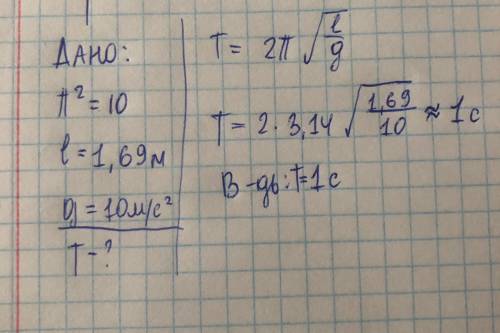 Дано:
π² = 10
l = 1,69м
g = 10м/с²
T - ?
T = 2π √(l/g)
T = 2 · 3,14 √(1,69/10) ≈ 1с
В-дь: T = 1с